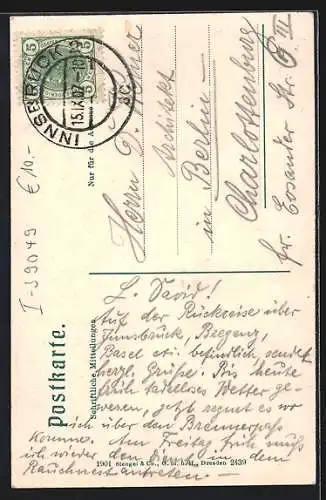 5 5
INNSBRUCK
15.IX.07
3c
Nur für die A
Herrn D.
Architekt
in Berlin –
Charlottenburg
fr. Eosander Str. 6 III
I-39049 € 10.-
Postkarte.
Schriftliche Mitteilungen
L. David!
Auf der Rückreise über
Innsbrück, Bregenz,
Basel etc. befindlich, sendet
herzl. Grüße. Bis heute
früh tadelloses Wetter ge-
wesen, jetzt regnet es wo
ich über den Brennerpass
komme. Am Freitag früh muß
ich wieder den Dienst in dem
Rauchnest antreten –
1901 Stengel & Co., G. m. b. H., Dresden 2439